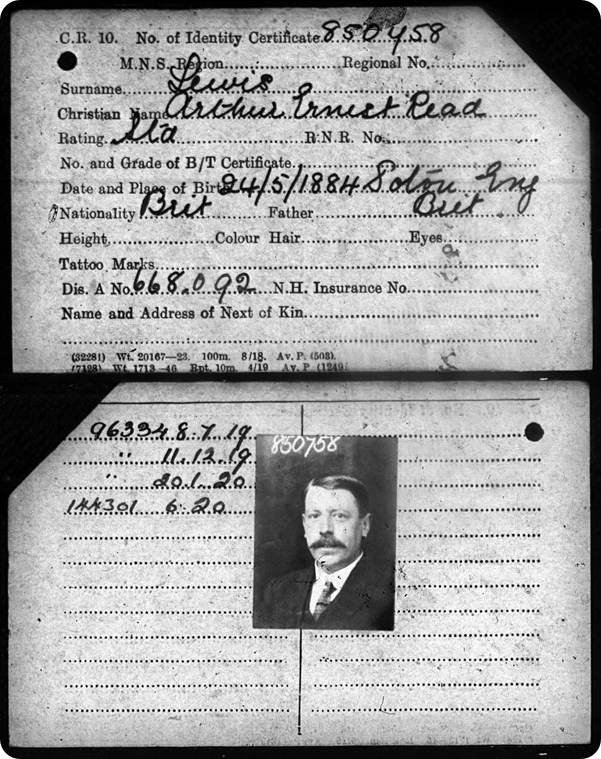 C.R. 10. No. of Identity Certificate 850758
M.N.S. Region Regional No.
Surname Lewis
Christian Name Arthur Ernest Read
Rating Std R.N.R. No.
No. and Grade of B/T Certificate
Date and Place of Birth 24/5/1884 Soton Eng
Nationality Brit Father Brit
Height Colour Hair Eyes
Tattoo Marks
Dis. A No. 668.092 N.H. Insurance No.
Name and Address of Next of Kin
(32281) Wt. 20167—23. 100m. 8/18. Av. P. (503).
(7128) Wt. 1713—46 Rpt. 10m. 4/19 Av. P (1249)
96334 8.7.19
" 11.12.19
" 20.1.20
144301 6.20
850758